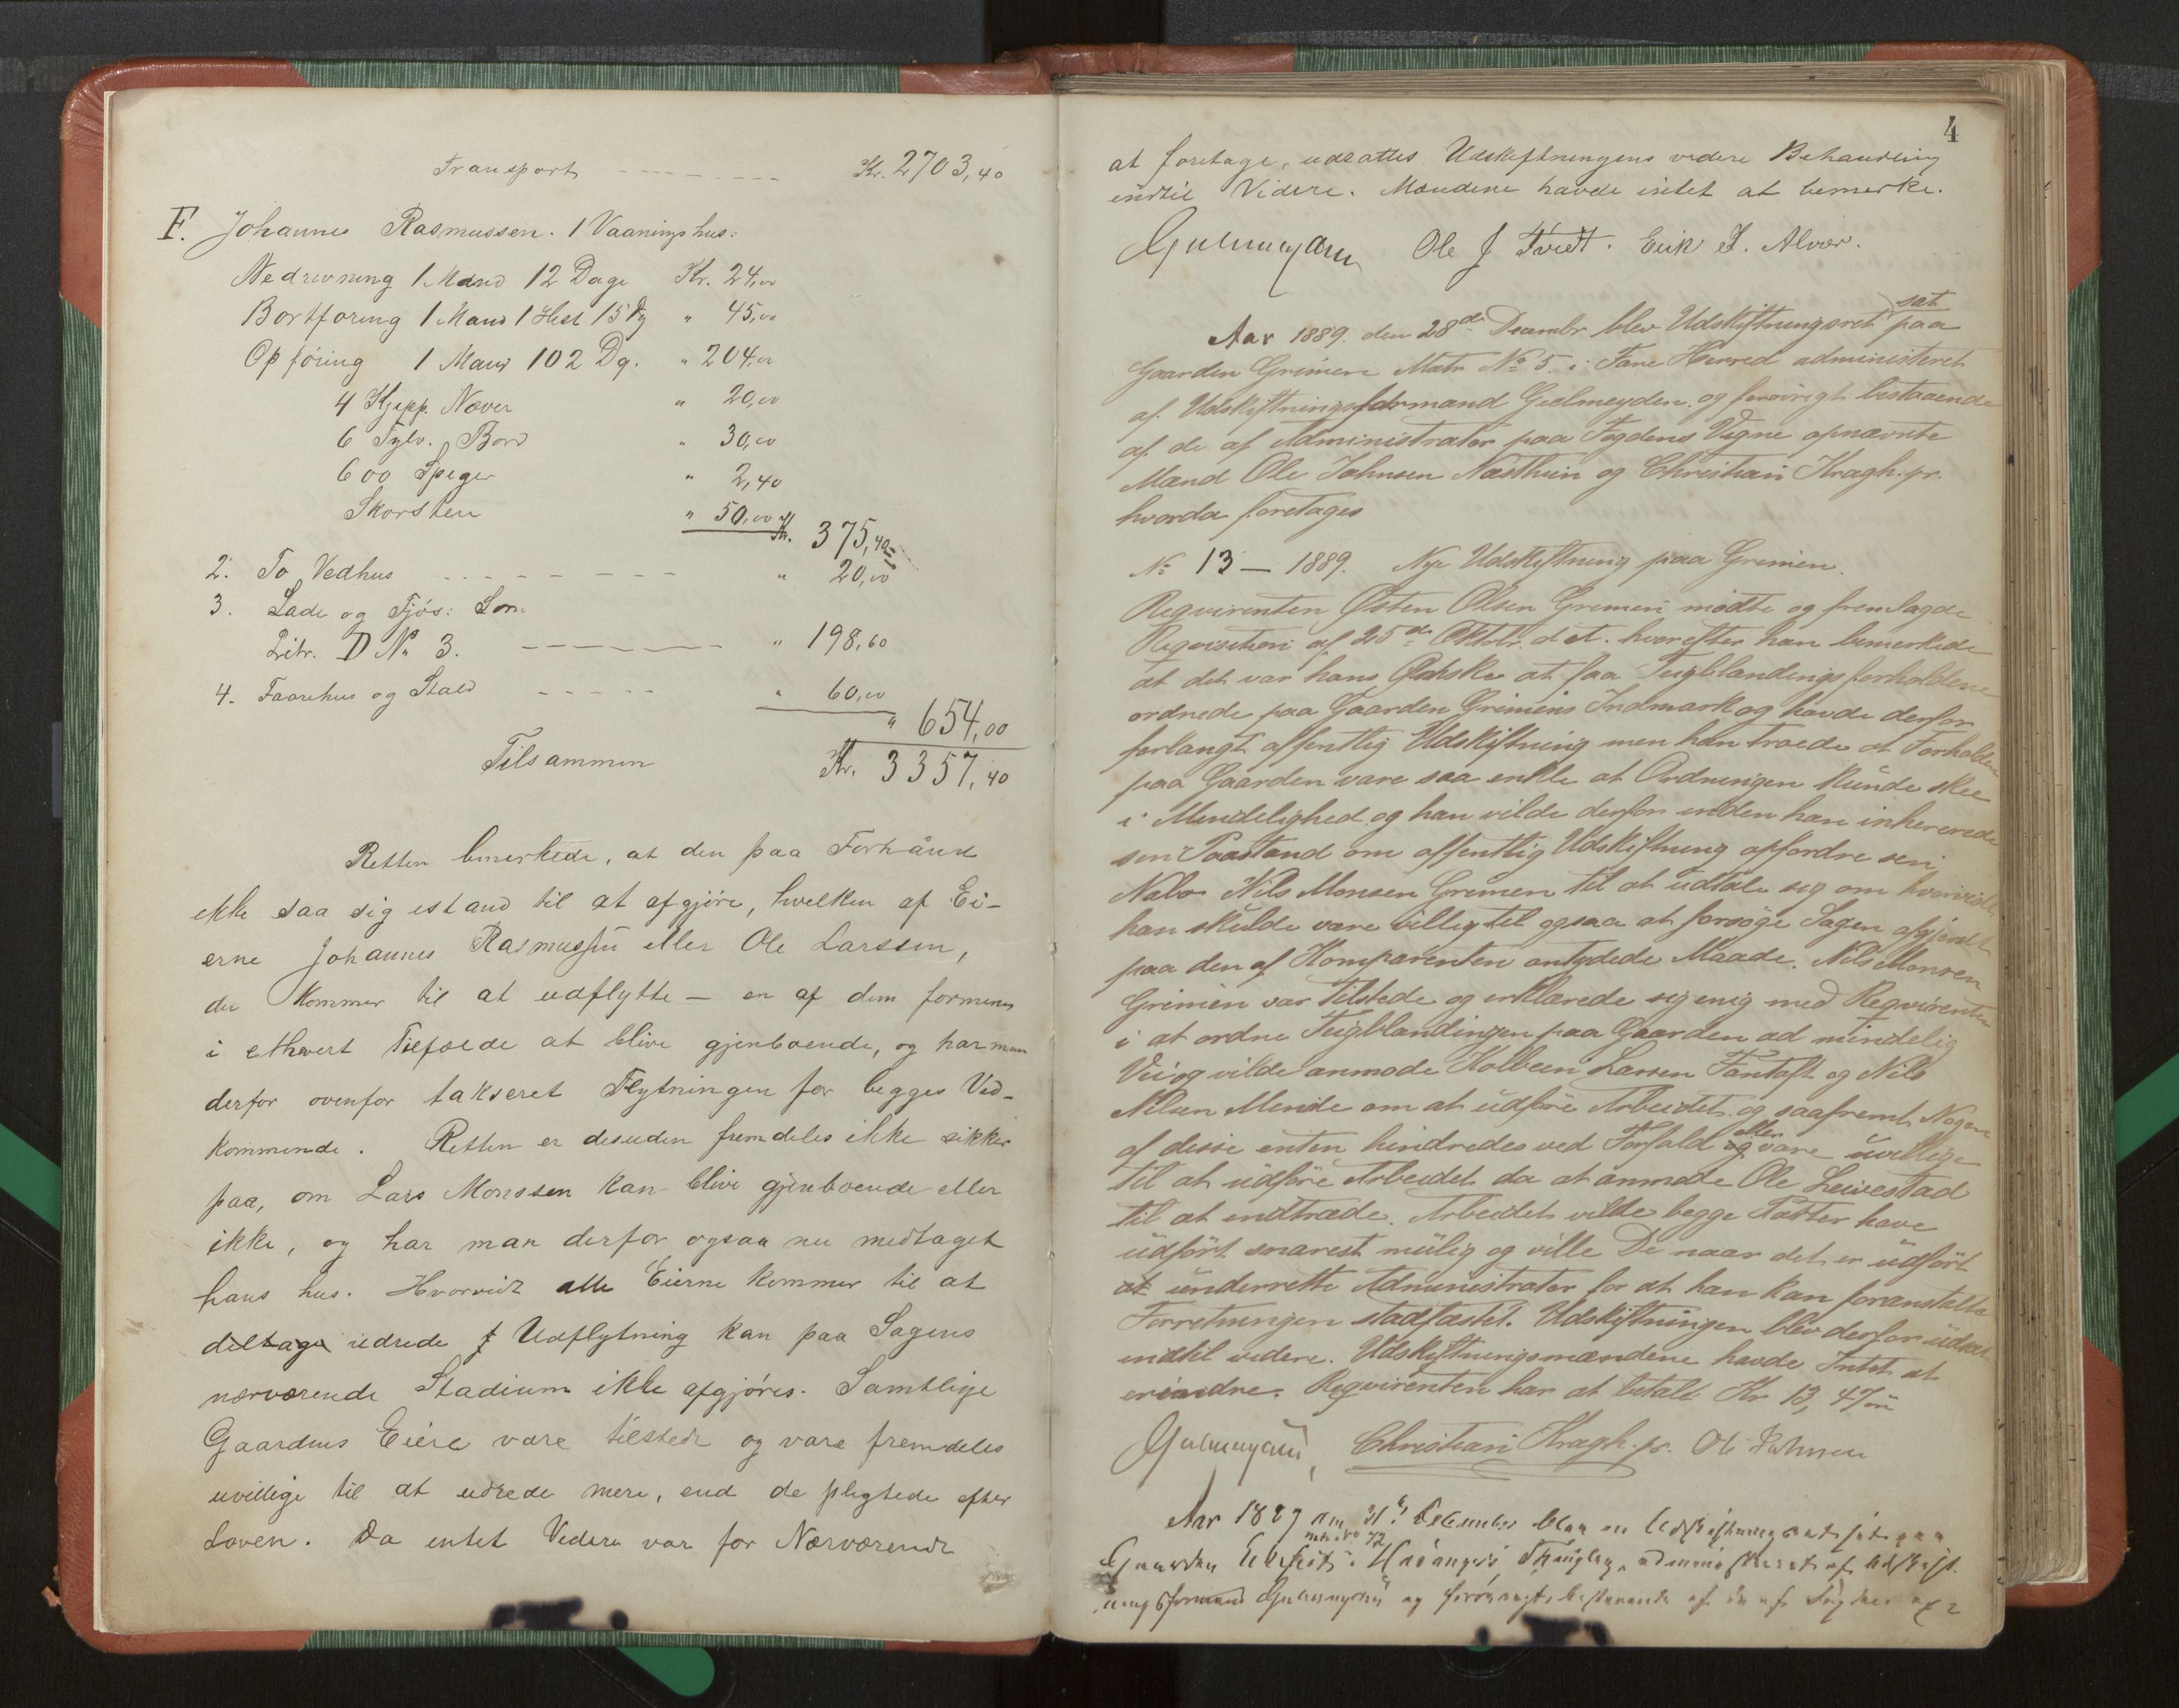 Transport Kr. 2703,40
F. Johannes Rasmussen. 1 Vaaningshus:
Nedrivning 1 Mand 12 Dage Kr. 24,00
Bortføring 1 Mand 1 Hest 15 Dg " 45,00
Opføring 1 Mand 102 Dg. " 204,00
4 Kjepp. Næver " 20,00
6 Tylv. Bord " 30,00
600 Spiger " 2,40
Skorsten " 50,00 Kr. 375,40
2. To Vedhus " 20,00
3. Lade og Fjøs: Som
Litr. D No 3. " 198,60
4. Faarehus og Stald " 60,00
" 654,00
Tilsammen Kr. 3357,40
Retten bemerkede, at den paa Forhaand
ikke saa sig istand til at afgjøre, hvilken af Ei-
erne Johannes Rasmussen eller Ole Larssen,
der kommer til at udflytte — en af dem formenes
i ethvert Tilfælde at blive gjenboende, og har man
derfor ovenfor takseret Flytningen for begges Ved-
kommende. Retten er desuden fremdeles ikke sikker
paa, om Lars Monssen kan blive gjenboende eller
ikke, og har man derfor ogsaa nu medtaget
hans hus. Hvorvidt alle Eierne kommer til at
deltage udrede f Udflytning kan paa Sagens
nærværende Stadium ikke afgjøres. Samtlige
Gaardens Eiere vare tilstede og vare fremdeles
uvillige til at udrede mere, end de pligtede efter
Loven. Da intet Videre var for Nærværende
4
at foretage, udsattes Udskiftningens videre Behandling
indtil Videre. Mændene havde intet at bemerke.
Gjelmeyden Ole J Tvedt. Erik I. Alver.
sat
Aar 1889. den 28de Decembr blev Udskiftningsret paa
Gaarden Grimen Matr No 5. i Fane Herred administeret
af Udskiftningsformand Gjelmeyden og forøvrigt bestaaende
af de af Administrator paa Fogdens Vegne opnævnte
Mænd Ole Johnsen Næsthun og Christian Kragh. jr.
hvorda foretages
No 13 — 1889. Nye Udskiftning paa Grimen.
Reqvirenten Østen Olsen Grimen mødte og fremlagde
Reqvisition af 25de Oktbr. d. A. hvorefter han bemerkede
at det var hans Ønske at faa Teigblandingsforholdene
ordnede paa Gaarden Grimens Indmark og havde derfor
forlangt offentlig Udskiftning men han troede at Forholdene
paa Gaarden vare saa enkle at Ordningen kunde skee
i Mindelighed og han vilde derfor inden han inhererede
sin Paastand om offentlig Udskiftning opfordre sin
Nabo Nils Monsen Grimen til at udtale sig om hvorvidt
han skulde være villig til ogsaa at forsøge Sagen afgjordt
paa den af Komparenten antydede Maade. Nils Monsen
Grimen var tilstede og erklærede sig enig med Reqvirenten
i at ordne Teigblandingen paa Gaarden ad mindelig
Vei og vilde anmode Kolbein Larsen Fantoft og Nils
Nilsen Mende om at udføre Arbeidet og saafremt Nogen
af disse enten hindredes ved Forfald og eller vare uvillige
til at udføre Arbeidet da at anmode Ole Leivestad
til at indtræde. Arbeidet vilde begge Parter have
udført snarest mulig og ville De naar det er udført
at underrette Administrator for at han kan foranstalte
Forretningen stadfæstet. Udskiftningen blev derfor udsat
indtil videre. Udskiftningsmændene havde Intet at
erindre. Reqvirenten har at betale Kr 13,47
Gjelmeyden, Christian Kragh. jr. Ole Johnsen
Aar 1889 den 31te December blev en Udskiftningsret sat paa
Matr. No 72
Gaarden i Thinglag, administreret af Udskift-
ningsformand Gjelmeyden og forøvrigt bestaaende af de af Fogden